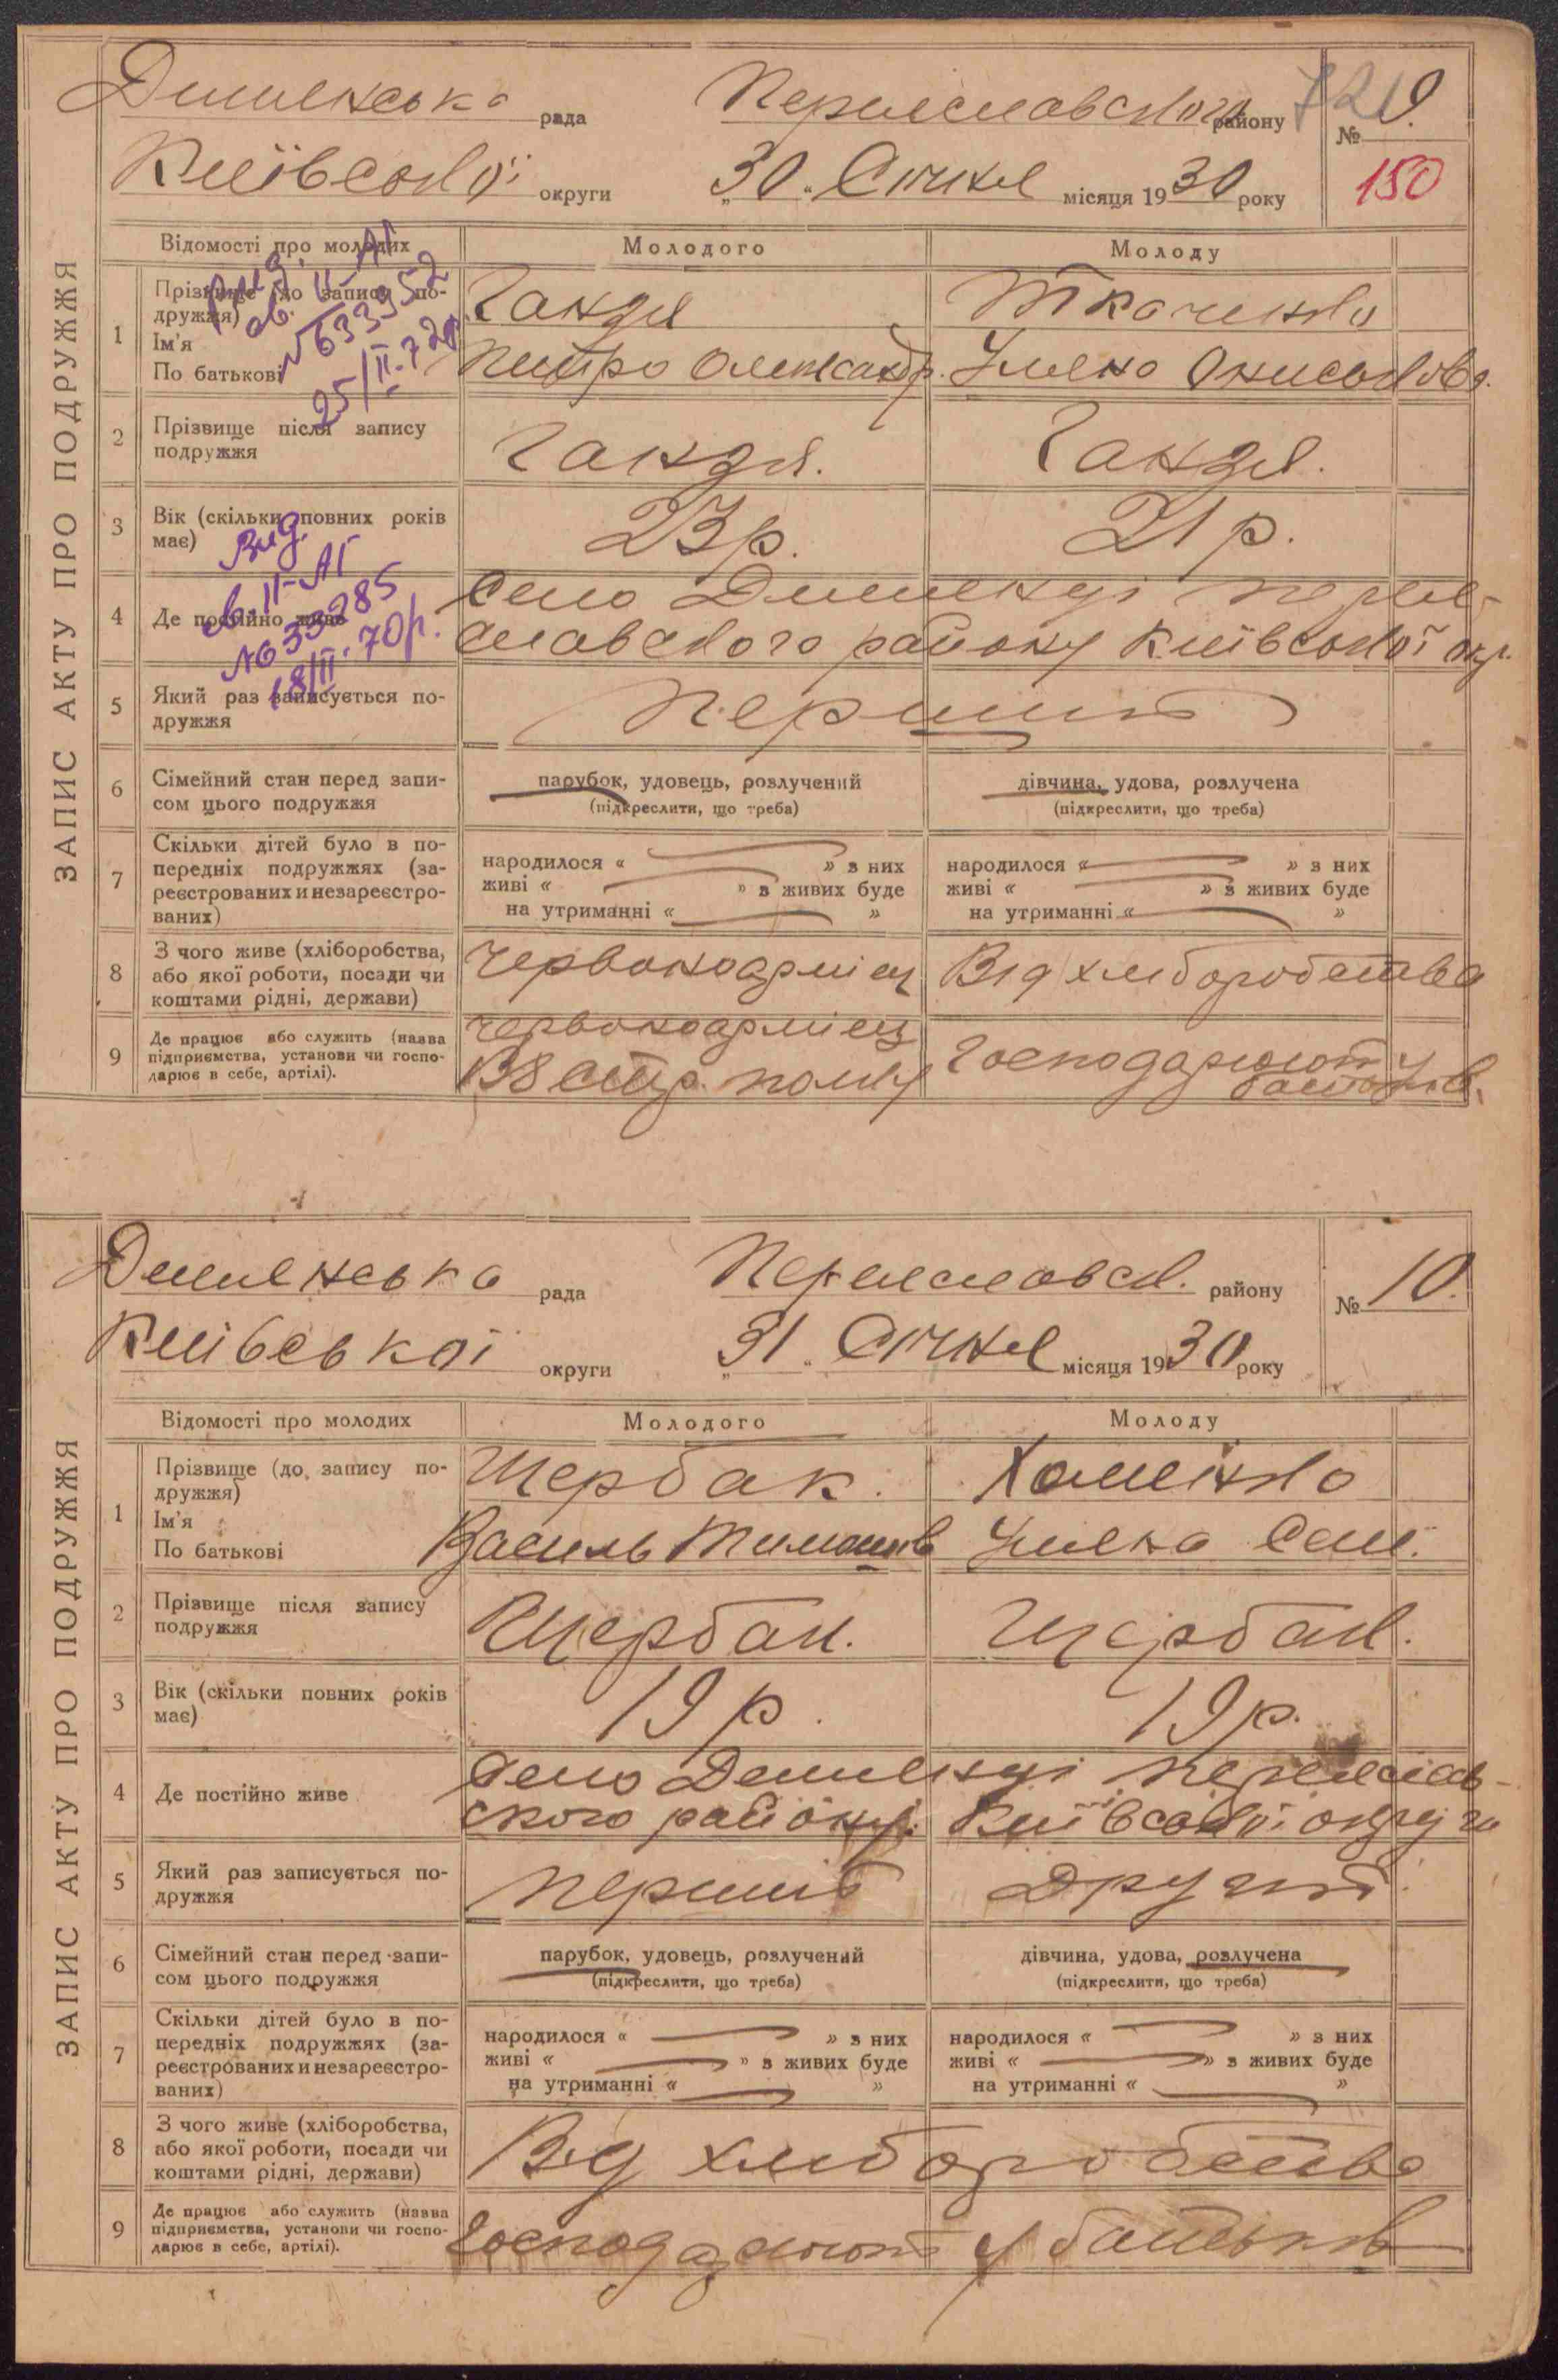 ЗАПИС АКТУ ПРО ПОДРУЖЖЯ
Демянська рада Переяславського району № 9.
721
Київської округи „30“ Січня місяця 1930 року 150
Відомості про молодих Молодого Молоду
1 Прізвище (до запису по- Гандя Ткаченко
дружжя)
Ім'я Петро Олександр. Уляна Ониськов.
По батькові
Вид. св. II-АГ
№ 633952
25/II-72р.
2 Прізвище після запису Гандя. Гандя.
подружжя
3 Вік (скільки повних років 23 р. 21 р.
має)
Вид. св. II-АГ
№ 633285
18/II.70р.
4 Де постійно живе Село Демянці Перея-
славського району Київської окр.
5 Який раз записується по- Перший
дружжя
6 Сімейний стан перед запи- парубок, удовець, розлучений дівчина, удова, розлучена
сом цього подружжя (підкреслити, що треба) (підкреслити, що треба)
7 Скільки дітей було в по-
передніх подружжях (за- народилося « » з них народилося « » з них
реєстрованих и незареєстро- живі « » з живих буде живі « » з живих буде
ваних) на утриманні « » на утриманні « »
8 З чого живе (хліборобства, Червоноармієц Від хліборобства
або якої роботи, посади чи
коштами рідні, держави)
9 Де працює або служить (назва червоноармієц Господарюют у
підприємства, установи чи госпо- 138 Стр. полку батьків.
дарює в себе, артілі).
ЗАПИС АКТУ ПРО ПОДРУЖЖЯ
Демянська рада Переяславськ. району № 10.
Київської округи „31“ Січня місяця 1930 року
Відомості про молодих Молодого Молоду
1 Прізвище (до запису по- Щербак. Хоменко
дружжя)
Ім'я Василь Тимошів Уляна Сем.
По батькові
2 Прізвище після запису Щербак. Щербак.
подружжя
3 Вік (скільки повних років 19 р. 19 р.
має)
4 Де постійно живе Село Демянці Переяслав-
ского району. Київської округи
5 Який раз записується по- перший Другий.
дружжя
6 Сімейний стан перед запи- парубок, удовець, розлучений дівчина, удова, розлучена
сом цього подружжя (підкреслити, що треба) (підкреслити, що треба)
7 Скільки дітей було в по-
передніх подружжях (за- народилося « » з них народилося « » з них
реєстрованих и незареєстро- живі « » з живих буде живі « » з живих буде
ваних) на утриманні « » на утриманні « »
8 З чого живе (хліборобства, Від хліборобства
або якої роботи, посади чи
коштами рідні, держави)
9 Де працює або служить (назва Господарюют у батьків
підприємства, установи чи госпо-
дарює в себе, артілі).